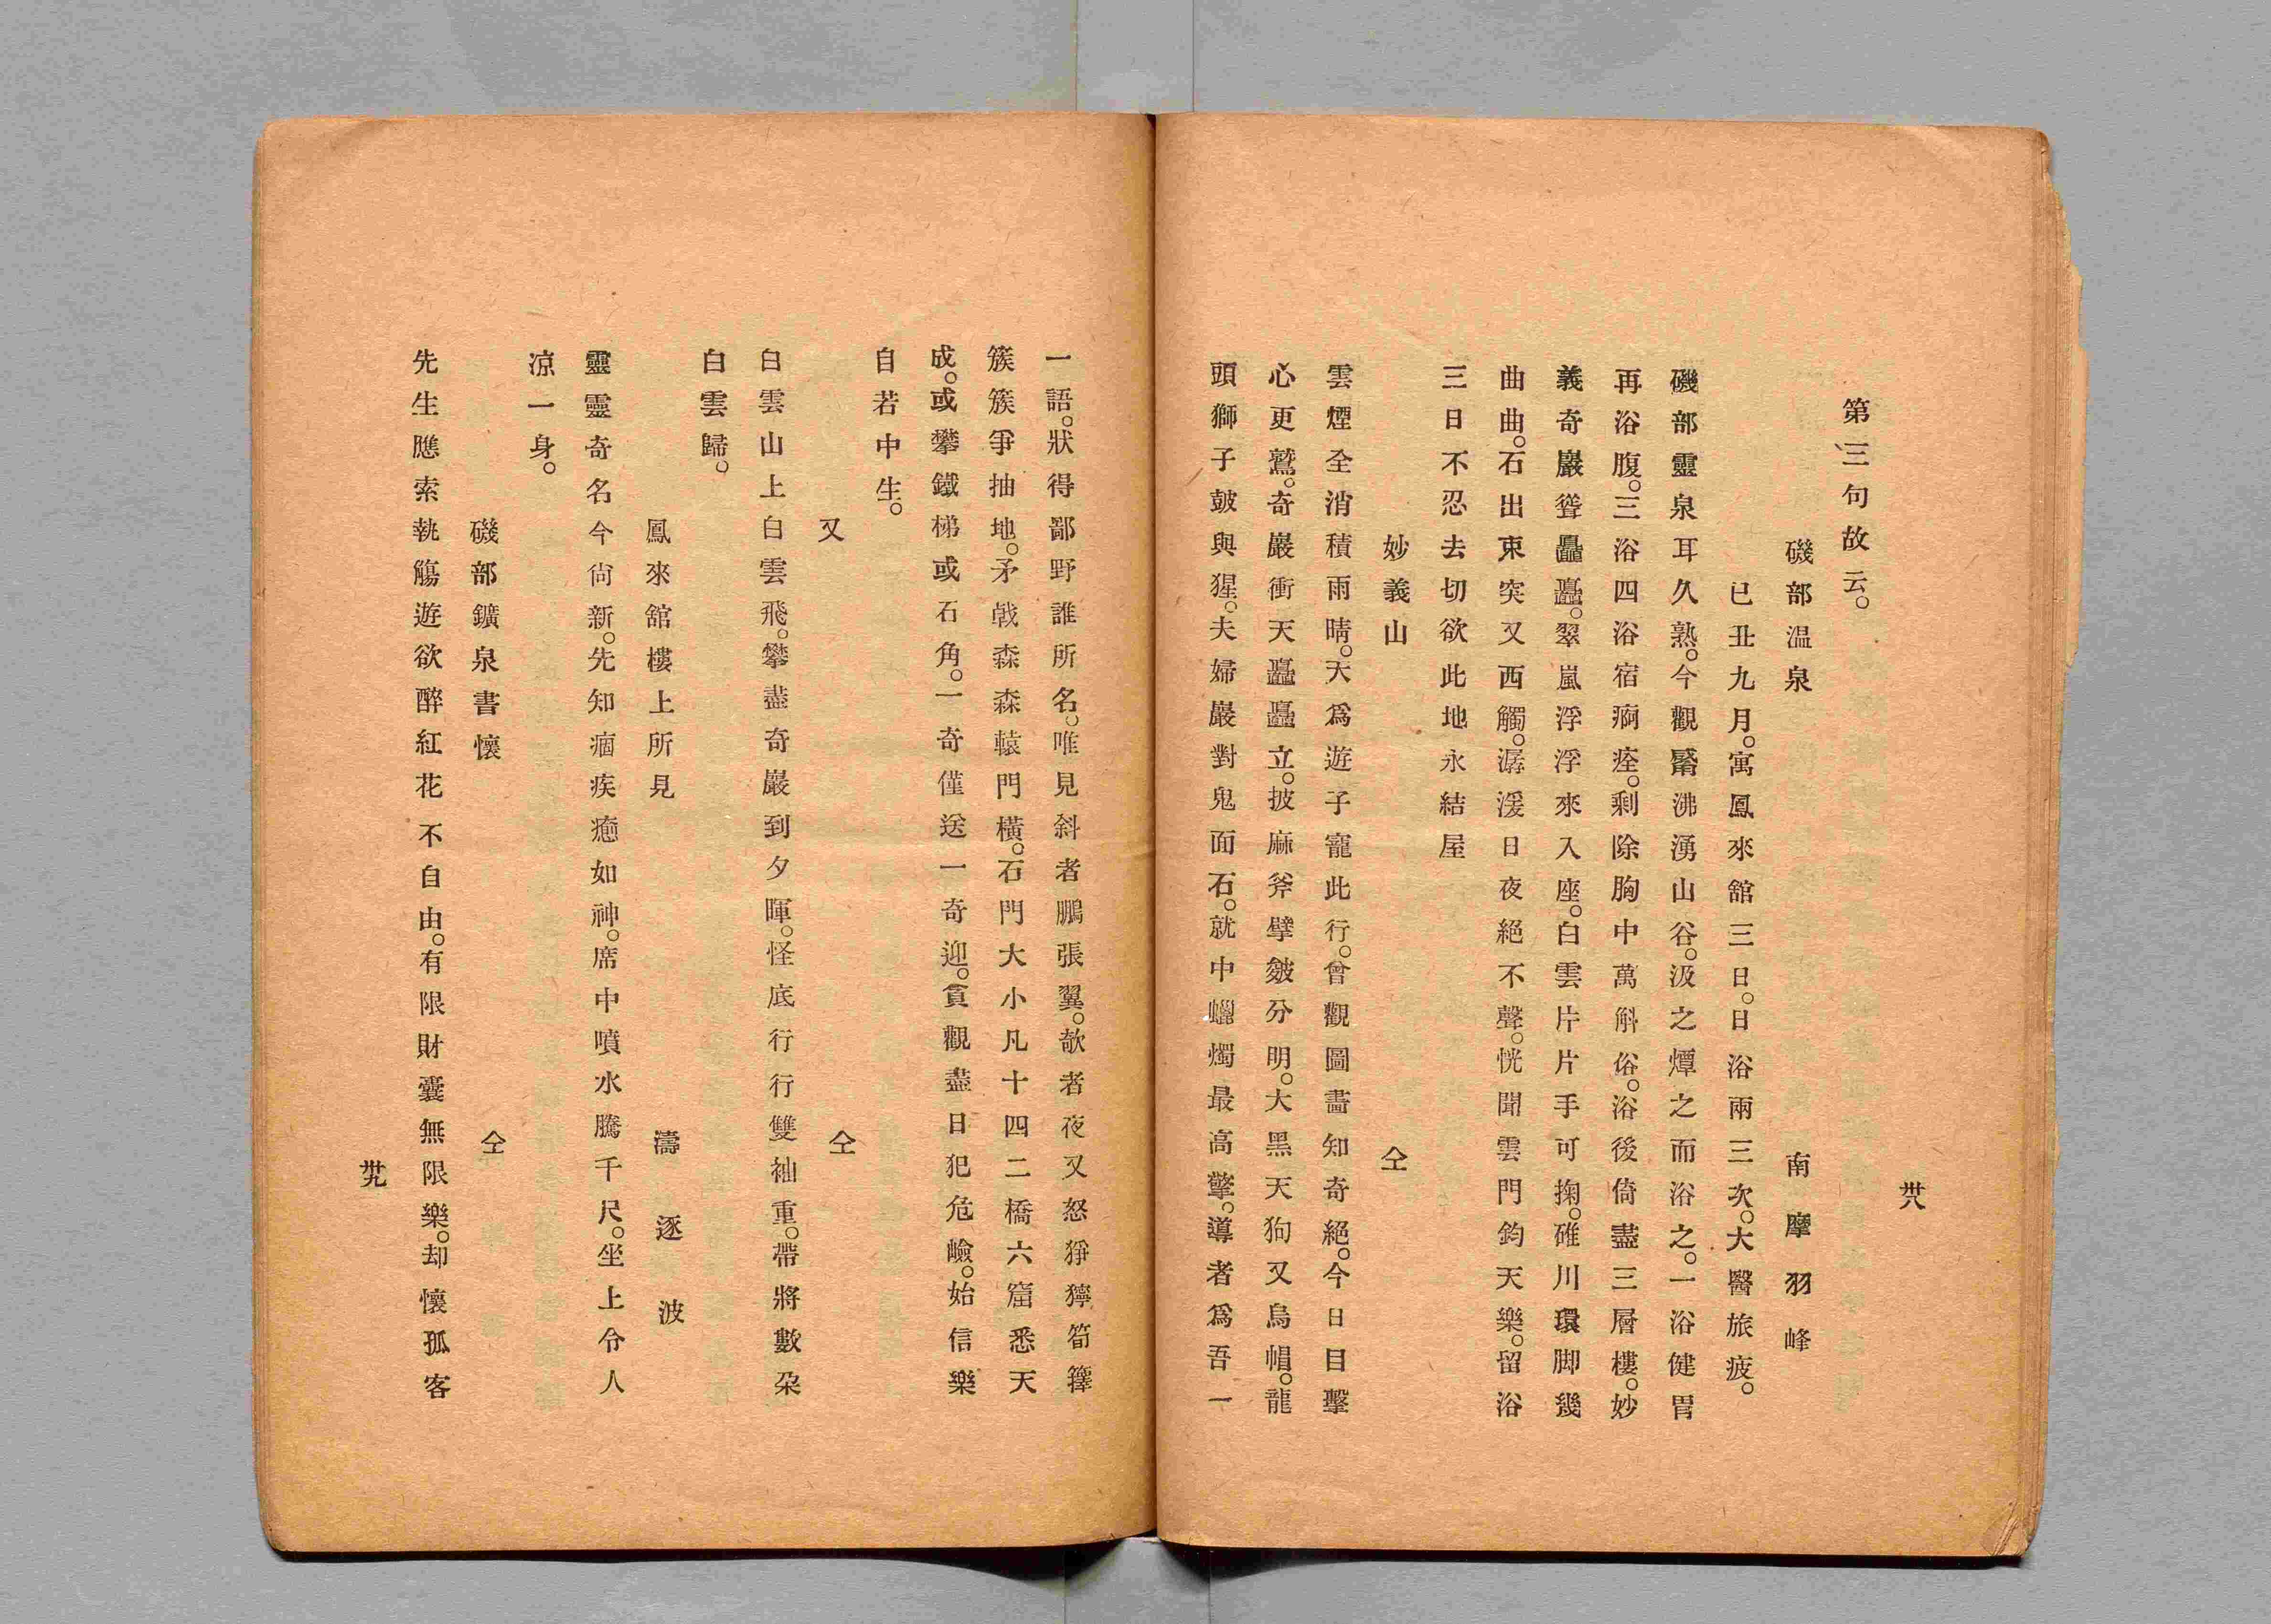 第三句故云。
磯部温泉　南摩羽峰
已丑九月。寓鳳來舘三日。日浴兩三次。大醫旅疲。
磯部靈泉耳久熟。今觀觱沸湧山谷。汲之燂之而浴之。一浴健胃
再浴腹。三浴四浴宿痾痊。剩除胸中萬斛俗。浴後倚盡三層樓。妙
義奇巖聳矗矗。翠嵐浮浮來入座。白雲片片手可掬。碓川環脚幾
曲曲。石出東突又西觸。潺湲日夜絕不聲。恍聞雲門鈞天樂。留浴
三日不忍去切欲此地永結屋
妙義山　仝
雲煙全消積雨晴。天爲遊子寵此行。曾觀圖畵知奇絕。今日目擊
心更驚。奇巖衝天矗矗立。披麻斧擘皴分明。大黑天狗又烏帽。龍
頭獅子皷與猩。夫婦巖對鬼面石。就中蠟燭最高擎。導者爲吾一
卅八
一語。狀得鄙野誰所名。唯見斜者鵬張翼。欹者夜叉怒猙獰筍籜
簇簇爭抽地。矛戟森森轅門橫。石門大小凡十四二橋六窟悉天
成。或攀鐵梯或石角。一奇僅送一奇迎。貪觀盡日犯危嶮。始信樂
自若中生。
又　仝
白雲山上白雲飛。攀盡奇巖到夕暉。怪底行行雙袖重。帶將數朶
白雲歸。
鳳來舘樓上所見　濤逐波
靈靈奇名今尙新。先知痼疾癒如神。席中噴水騰千尺。坐上令人
凉一身。
磯部鑛泉書懷　仝
先生應索執觴遊欲醉紅花不自由。有限財囊無限樂。却懷孤客
卅九